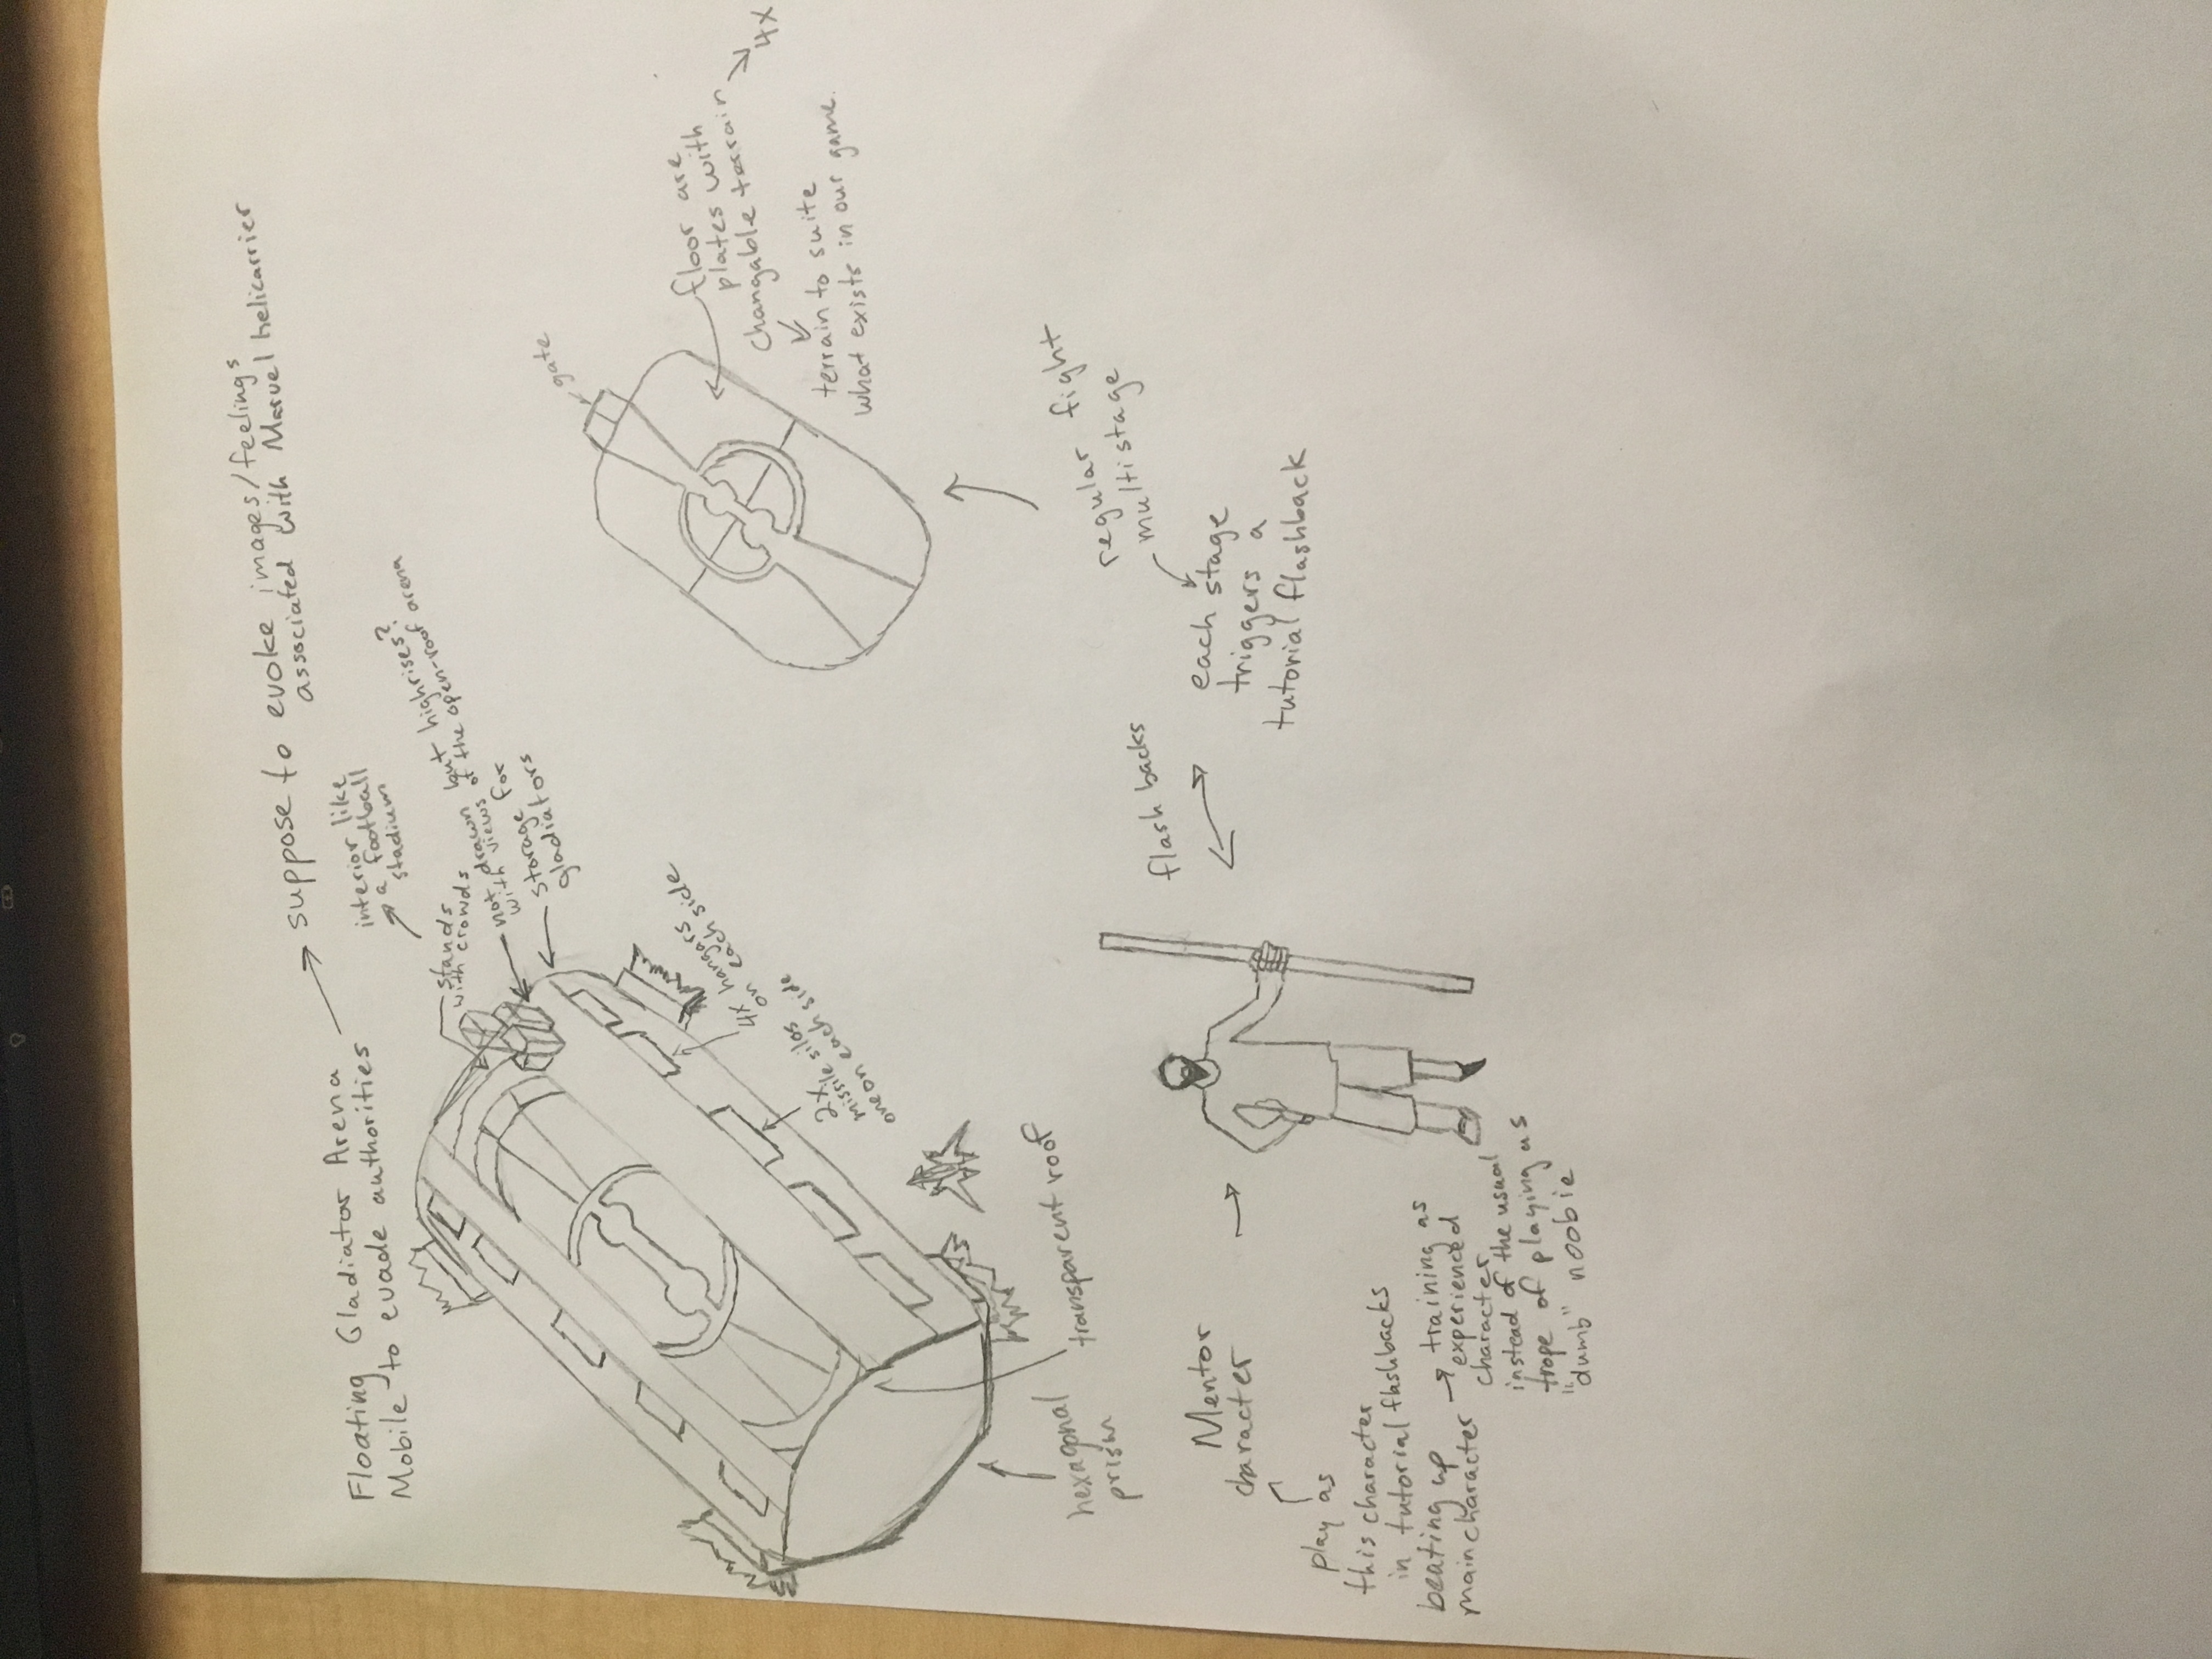 Floating Gladiator Arena
Mobile to evade authorities
suppose to evoke images/feelings
associated with Marvel helicarrier
interior like
a football
stadium
stands
with crowds
not drawn but highrises?
with views of the open-roof arena
storage for
gladiators
4x hangars
on each side
2x
missile silos
one on each side
hexagonal
prism
transparent roof
gate
floor are
plates with
changable terrain
4x
terrain to suite
what exists in our game.
regular fight
multistage
each stage
triggers a
tutorial flashback
flash backs
Mentor
character
play as
this character
in tutorial flashbacks
beating up
main character
training as
experienced
character
instead of the usual
trope of playing as
"dumb" noobie